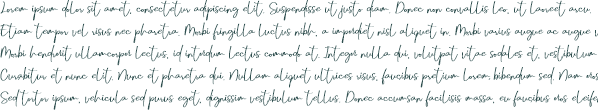 Lorem ipsum dolor sit amet, consectetur adipiscing elit. Suspendisse ut justo diam. Donec non convallis leo, ut laoreet arcu.
Etiam tempor vel risus nec pharetra. Morbi fringilla luctus nibh, a imperdiet nisl aliquet in. Morbi varius augue ac augue
Morbi hendrerit ullamcorper lectus, id interdum lectus commodo at. Integer nulla dui, volutpat vitae sodales et, vestibulum
Curabitur et nunc elit. Nunc et pharetra dui. Nullam aliquet ultrices risus, faucibus pretium lorem bibendum sed. Nam
Sed tortor ipsum, vehicula sed purus eget, dignissim vestibulum tellus. Donec accumsan facilisis massa, eu faucibus mos eleifen